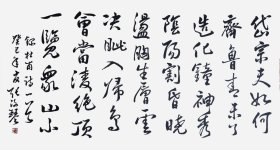 岱宗夫如何
齊魯青未了
造化鐘神秀
陰陽割昏曉
盪胸生層雲
決眦入歸鳥
會當凌絕頂
一覽眾山小
錄杜甫詩一首
癸巳年